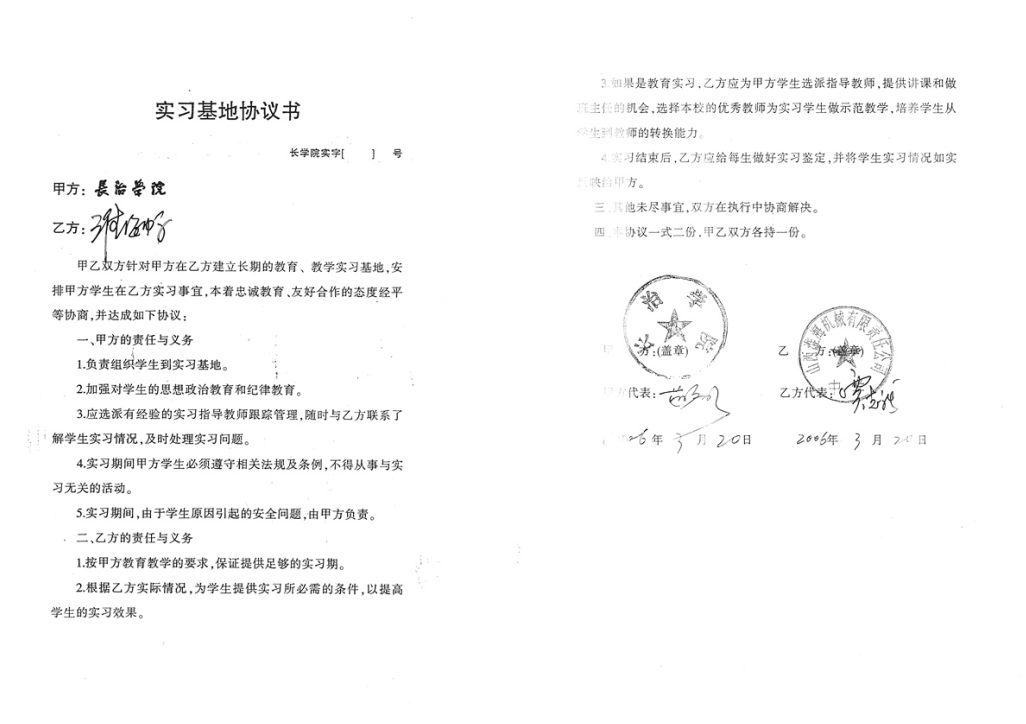 实习基地协议书
长学院实字[ ] 号
甲方：長治學院
乙方：
甲乙双方针对甲方在乙方建立长期的教育、教学实习基地,安
排甲方学生在乙方实习事宜,本着忠诚教育、友好合作的态度经平
等协商,并达成如下协议：
一、甲方的责任与义务
1.负责组织学生到实习基地。
2.加强对学生的思想政治教育和纪律教育。
3.应选派有经验的实习指导教师跟踪管理,随时与乙方联系了
解学生实习情况,及时处理实习问题。
4.实习期间甲方学生必须遵守相关法规及条例,不得从事与实
习无关的活动。
5.实习期间,由于学生原因引起的安全问题,由甲方负责。
二、乙方的责任与义务
1.按甲方教育教学的要求,保证提供足够的实习期。
2.根据乙方实际情况,为学生提供实习所必需的条件,以提高
学生的实习效果。
3.如果是教育实习,乙方应为甲方学生选派指导教师,提供讲课和做
班主任的机会,选择本校的优秀教师为实习学生做示范教学,培养学生从
学生到教师的转换能力。
4.实习结束后,乙方应给每生做好实习鉴定,并将学生实习情况如实
反映给甲方。
三、其他未尽事宜,双方在执行中协商解决。
四、本协议一式二份,甲乙双方各持一份。
长治学院
机械有限责任公司
甲 方:(盖章) 乙 方:(盖章)
甲方代表: 乙方代表:
2006年 3 月 20日 2006年 3 月 20日